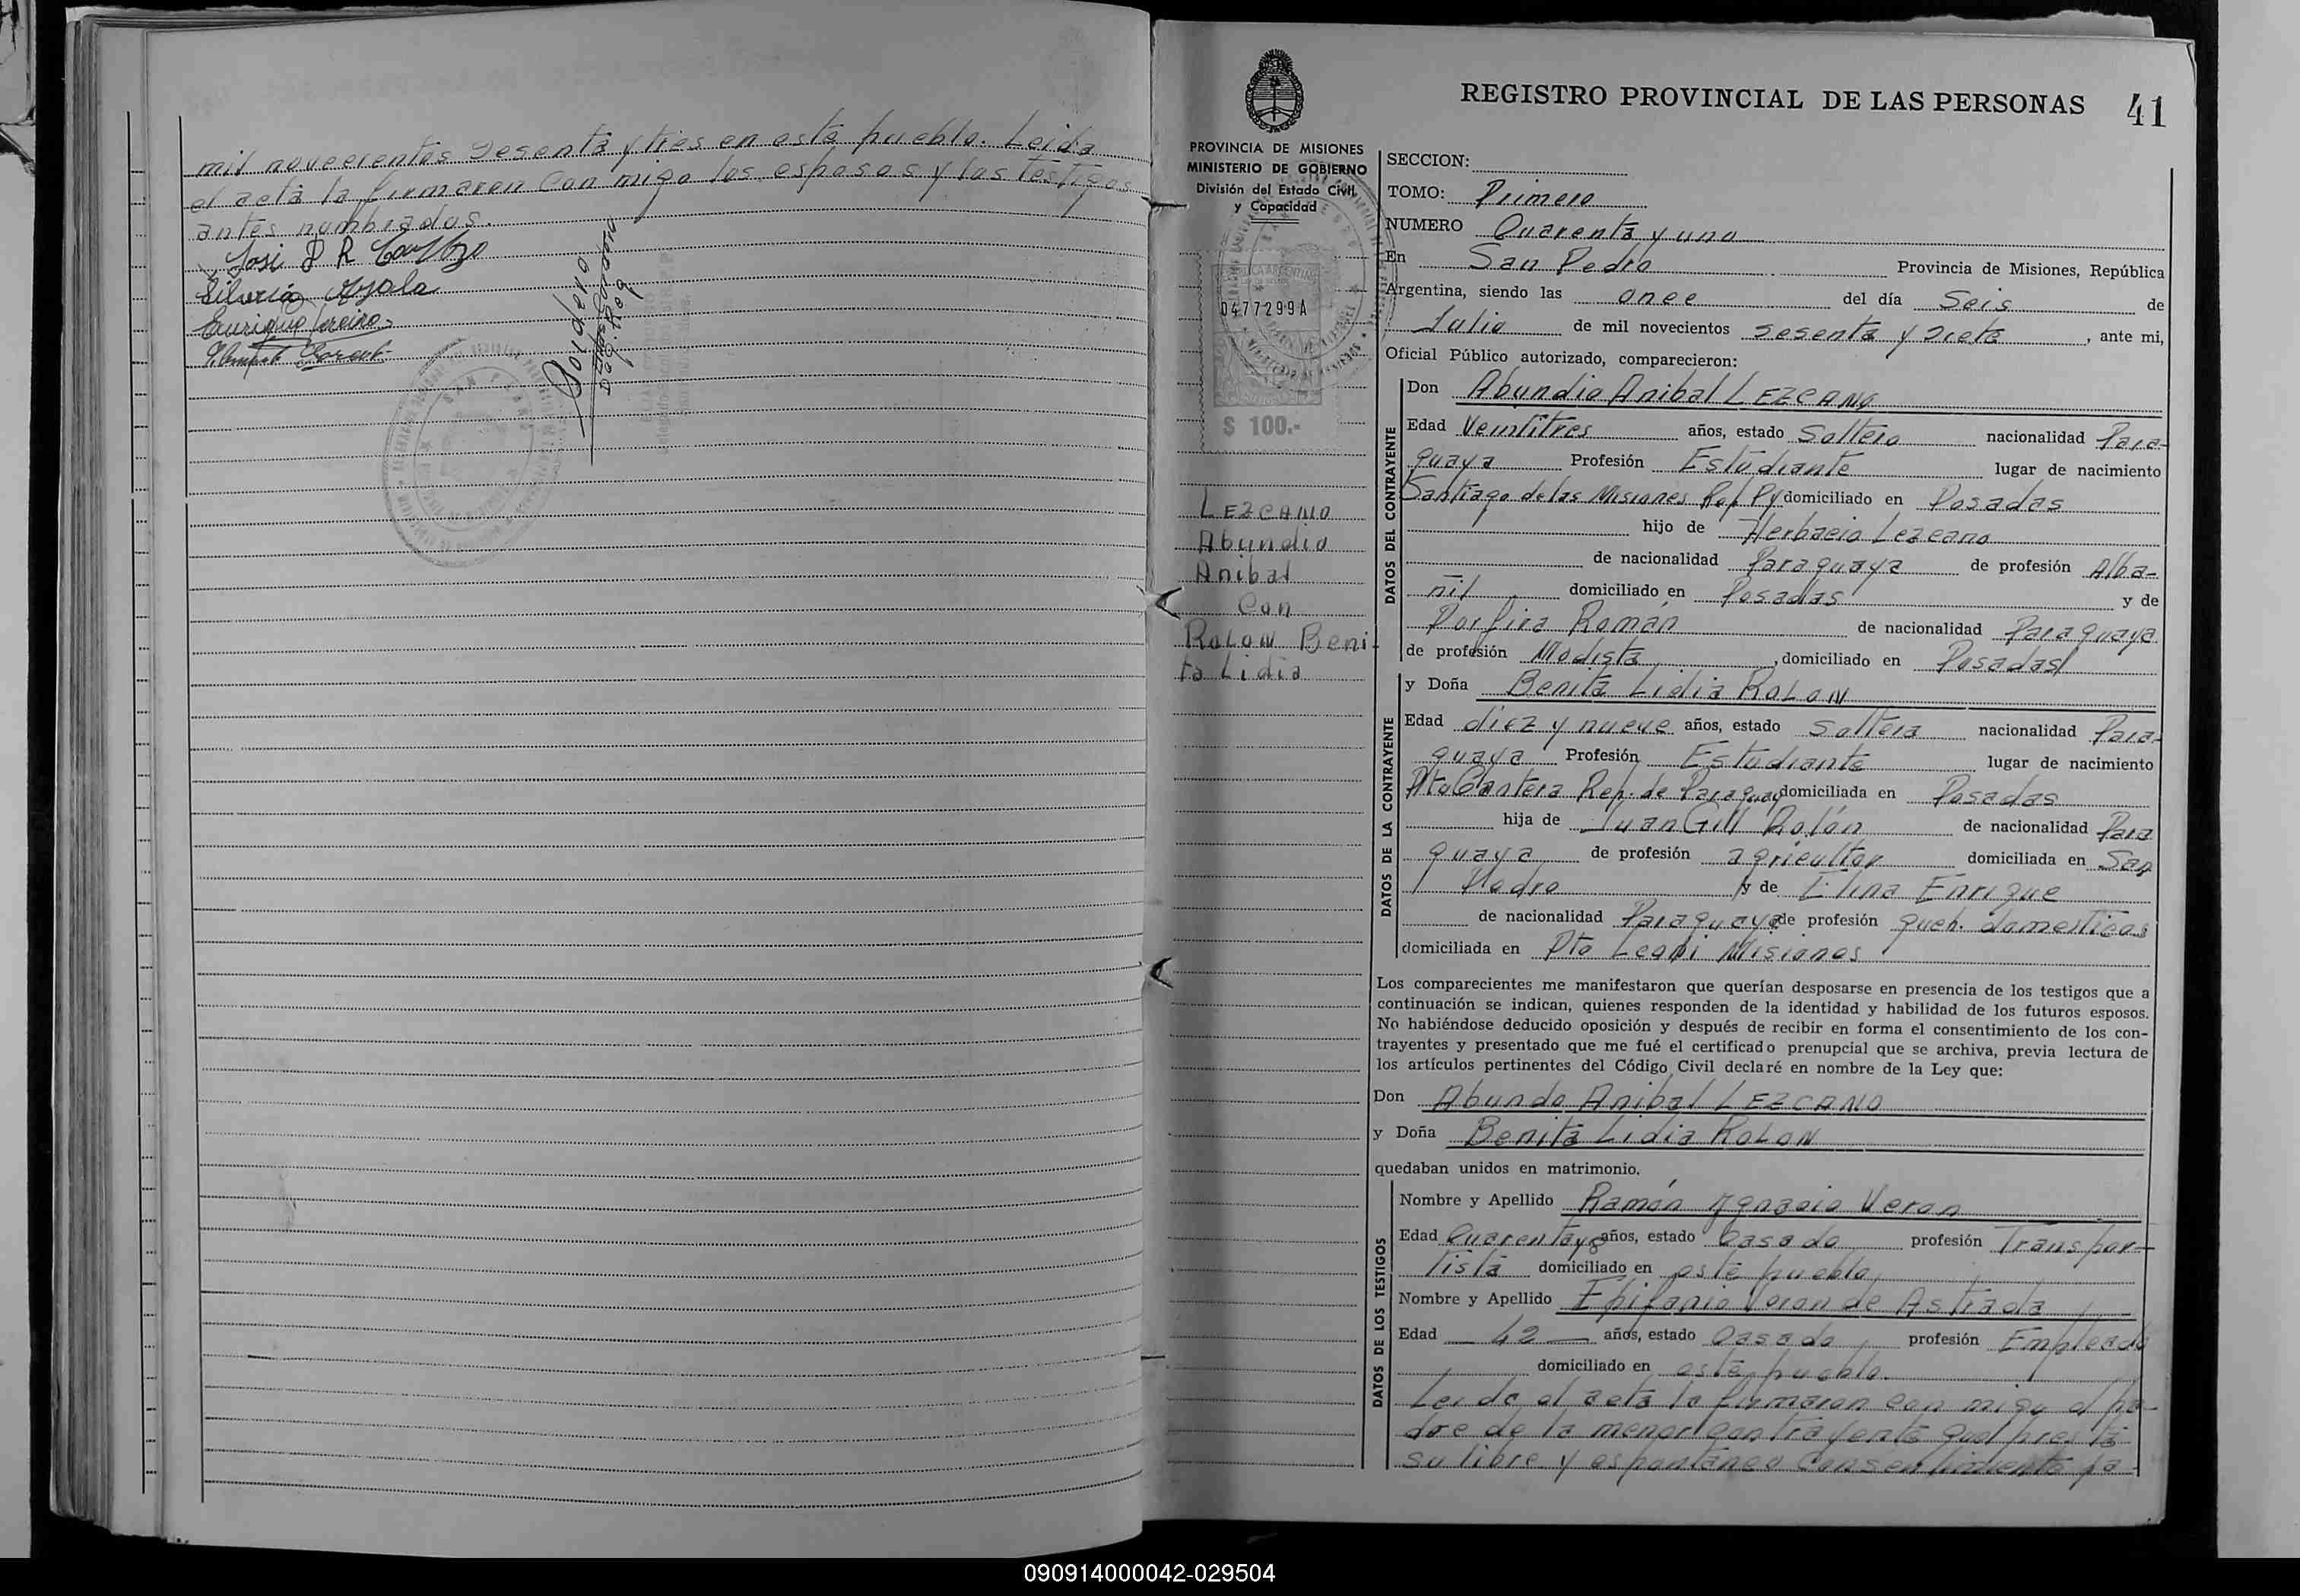 mil noveecentos sesenta y tres en este pueblo. Leida
el acta la firmaron con migo los esposos y los testigos
antes nombrados.
REGISTRO PROVINCIAL DE LAS PERSONAS 41
PROVINCIA DE MISIONES
MINISTERIO DE GOBIERNO
División del Estado Civil
y Capacidad
0477299A
$ 100.-
LEZCANO
Abundio
Anibal
Con
ROLON Beni-
ta Lidia
SECCION:
TOMO: Primero
NUMERO Quarenta y uno
En San Pedro Provincia de Misiones, República
Argentina, siendo las once del día Seis de
Julio de mil novecientos sesenta y siete, ante mi,
Oficial Público autorizado, comparecieron:
DATOS DEL CONTRAYENTE
Don Abundio Anibal LEZCANO
Edad Veintitres años, estado Soltero nacionalidad Para-
guaya Profesión Estudiante lugar de nacimiento
Santiago de las Misiones Rep Py domiciliado en Posadas
hijo de Herbacio Lezcano
de nacionalidad Paraguaya de profesión Alba-
ñil domiciliado en Posadas y de
Porfira Román de nacionalidad Paraguaya
de profesión Modista, domiciliado en Posadas
DATOS DE LA CONTRAYENTE
y Doña Benita Lidia ROLON
Edad diez y nueve años, estado Soltera nacionalidad Para-
guaya Profesión Estudiante lugar de nacimiento
Pto Cantera Rep. de Paraguay domiciliada en Posadas
hija de Juan Gill Rolón de nacionalidad Para
guaya de profesión agricultor domiciliada en San
Pedro y de Elina Enrique
de nacionalidad Paraguaya de profesión queh. domesticos
domiciliada en Pto Leoni Misiones
Los comparecientes me manifestaron que querían desposarse en presencia de los testigos que a
continuación se indican, quienes responden de la identidad y habilidad de los futuros esposos.
No habiéndose deducido oposición y después de recibir en forma el consentimiento de los con-
trayentes y presentado que me fué el certificado prenupcial que se archiva, previa lectura de
los artículos pertinentes del Código Civil declaré en nombre de la Ley que:
Don Abundo Anibal LEZCANO
y Doña Benita Lidia ROLON
quedaban unidos en matrimonio.
DATOS DE LOS TESTIGOS
Nombre y Apellido Ramón Ygnacio Veron
Edad Cuarentay8 años, estado Casado profesión Transpor-
tista domiciliado en este pueblo,
Nombre y Apellido Epifanio Veron de Astrada
Edad 42 años, estado Casado profesión Empleado
domiciliado en este pueblo.
Leida el acta la firmaron con migo el pa-
dre de la menor contrayente qual presta
su libre y espontaneo consentimiento pa-
090914000042-029504